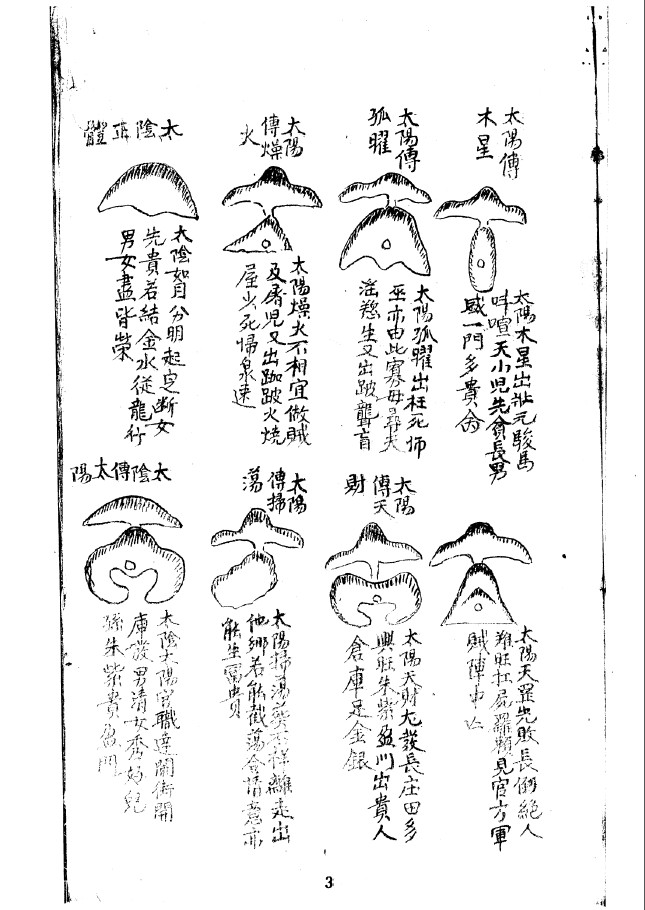 太陽傳
木星
太陽木星出壯元駿馬
呌喧天小児先貧長男
咸一門多貴
太陽傳
孤曜
太陽孤曜出枉死师
巫亦由此寡母尋夫
淫慾生又出跛聾盲
太陽
傳燥
火
太陽燥火不相宜做賊
及屠児又出跏跛火燒
屋少死歸泉速
太陰正體
太陰如月分明起定斷女
先貴若結金水従龍行
男女盡皆榮
太陽天罡先敗長倒絕人
难旺扛屍羅賴見官方軍
賊陣中亡
太陽
傳天
財
太陽天財尤發長庄田多
興旺朱紫盈门出貴人
倉庫足金銀
太陽
傳掃
蕩
太陽掃蕩葵不祥離走出
他鄉若能截蕩會情意亦
能生富貴
太陰傳太陽
太陰太陽官職達開衙開
庫發男清女秀好兒
孫朱紫貴盈門
3